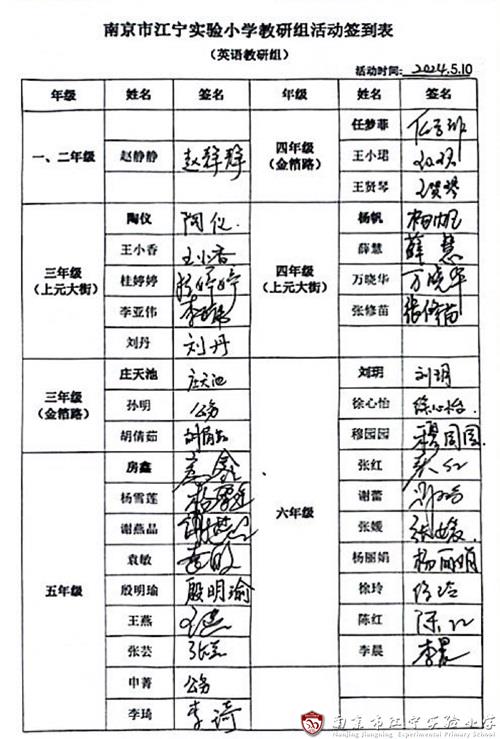 南京市江宁实验小学教研组活动签到表
（英语教研组）
活动时间: 2024.5.10
年级 姓名 签名 年级 姓名 签名
一、二年级 赵静静 赵静静
四年级（金箔路） 任梦菲 任梦菲
王小珺
王贤琴 王贤琴
三年级（上元大街） 陶仪 陶仪
王小香 王小香
桂婷婷 桂婷婷
李亚伟 李亚伟
刘丹 刘丹
四年级（上元大街） 杨帆 杨帆
薛慧 薛慧
万晓华 万晓华
张修苗 张修苗
三年级（金箔路） 庄天池 庄天池
孙明 公务
胡倩茹 胡倩茹
五年级 房鑫 房鑫
杨雪莲 杨雪莲
谢燕晶
袁敏 袁敏
殷明瑜 殷明瑜
王燕 王燕
张芸 张芸
申菁 公务
李琦 李琦
六年级 刘玥 刘玥
徐心怡 徐心怡
穆园园 穆园园
张红 张红
谢蕾
张媛 张媛
杨丽娟 杨丽娟
徐玲 徐玲
陈红 陈红
李晨 李晨
南京市江宁实验小学
Nanjing Jiangning Experimental Primary School